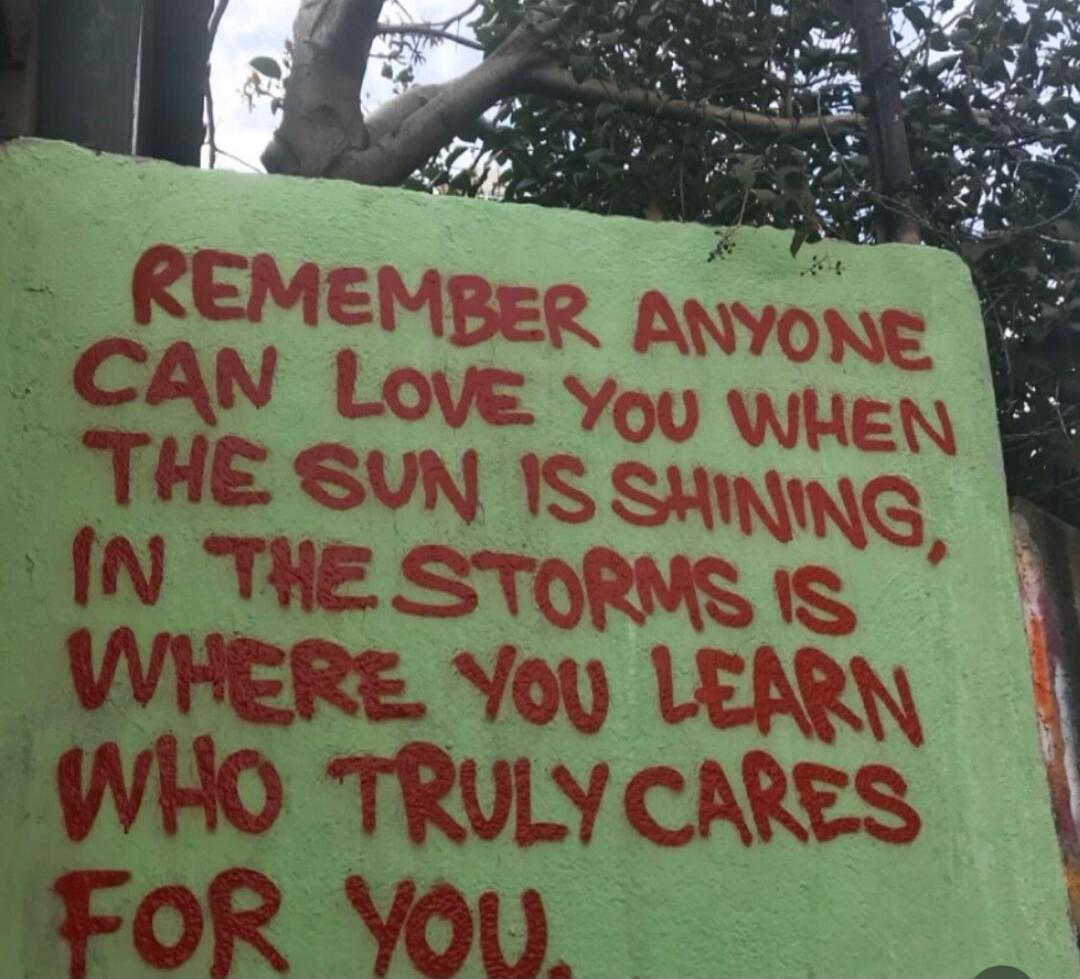 REMEMBER ANYONE
CAN LOVE YOU WHEN
THE SUN IS SHINING,
IN THE STORMS IS
WHERE YOU LEARN
WHO TRULY CARES
FOR YOU.